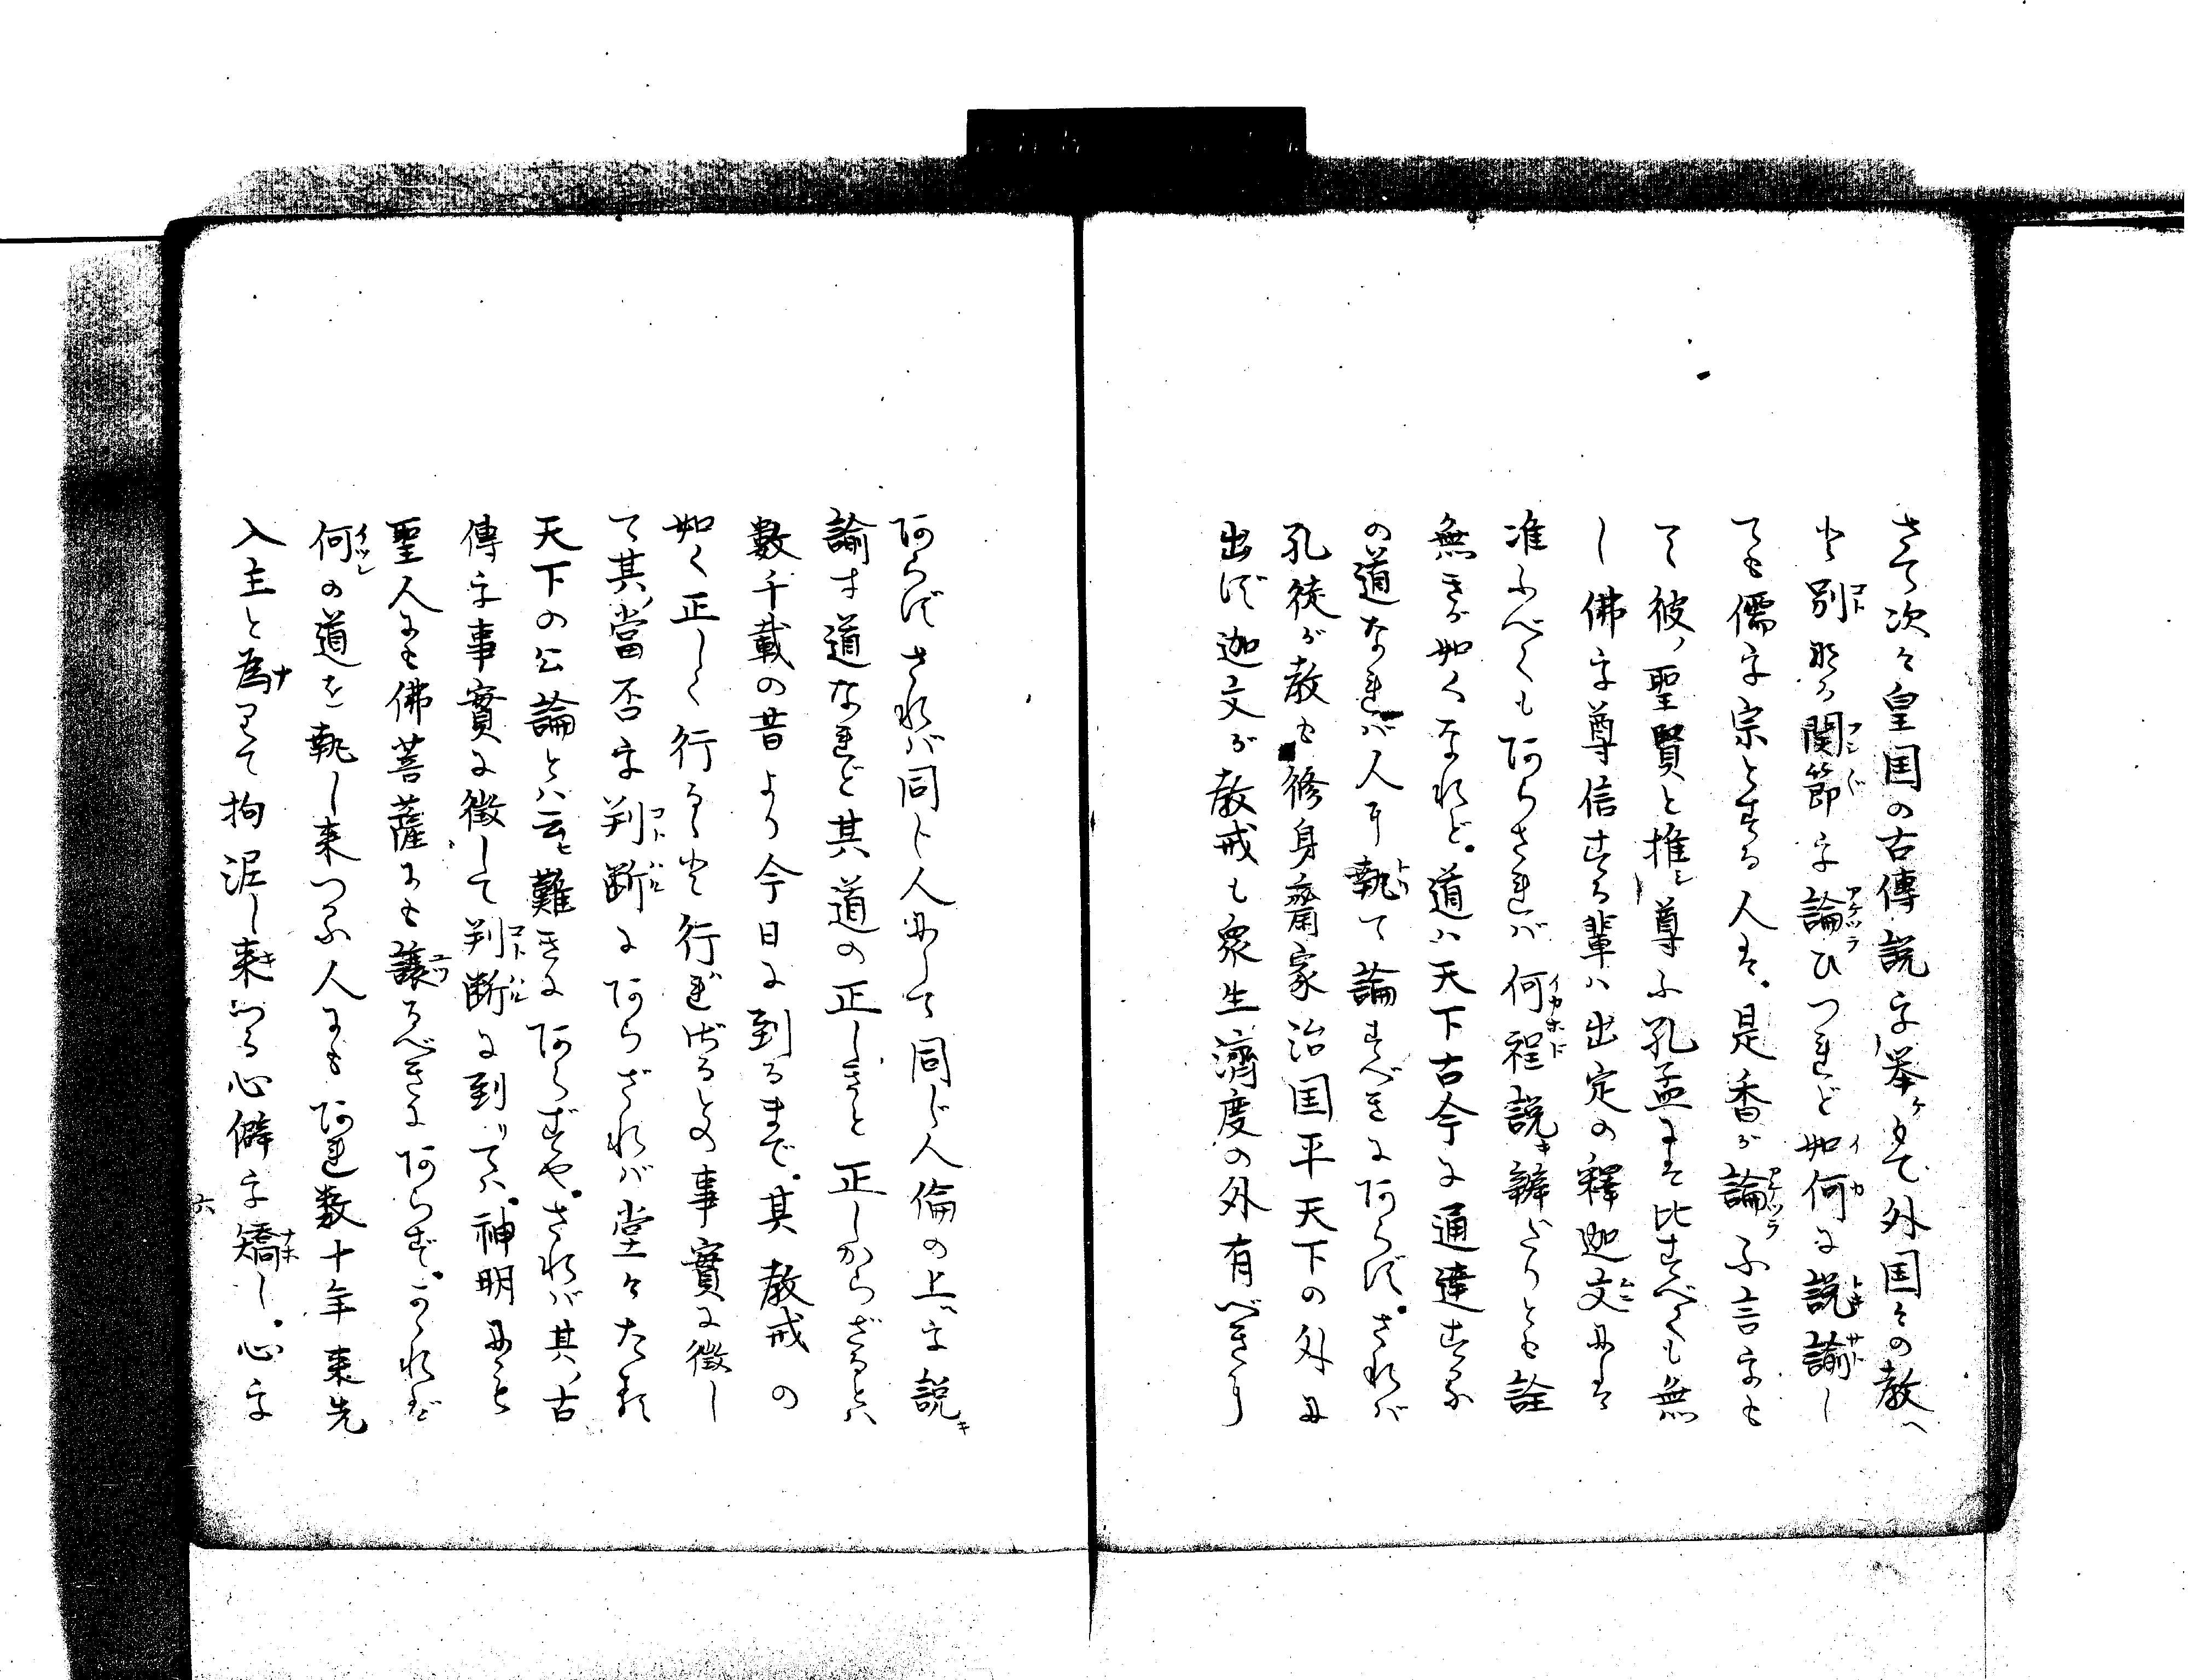 さて次々皇国の古傳説を挙ケもて外国々の教へ
と別なる関節を論ひつれど如何に説諭し
ても儒を宗とする人は。是香が論ふ言をも
て彼ノ聖賢と推シ尊ふ孔孟には比すべくも無
し佛を尊信する輩ハ出定の釋迦文には
准ふべくもあらされバ何程説キ辨たりとも詮
無きが如くなれど。道ハ天下古今に通達する
の道なれバ人に執て論すべきにあらず。されバ
孔徒が教も修身齋家治国平天下の外に
出ず迦文が教戒も衆生濟度の外有べきに
あらずされバ同じ人にして同じ人倫の上ヘを説キ
諭す道なれど其道の正しきと正しからざるとハ
數千載の昔より今日に到るまで。其教戒の
如く正しく行るゝと行れざるとの事實に徴し
て其ノ當否を判断にあらざれバ堂々たる
天下の公論とハ云ヒ難きにあらずや。されバ其ノ古
傳を事實に徴して判断に到りてハ。神明にも
聖人にも佛菩薩にも譲るべきにあらず。かゝれど
何の道を執し来つる人にもあれ数十年来先
入主と為りて拘泥し来つる心僻を矯し。心を
六